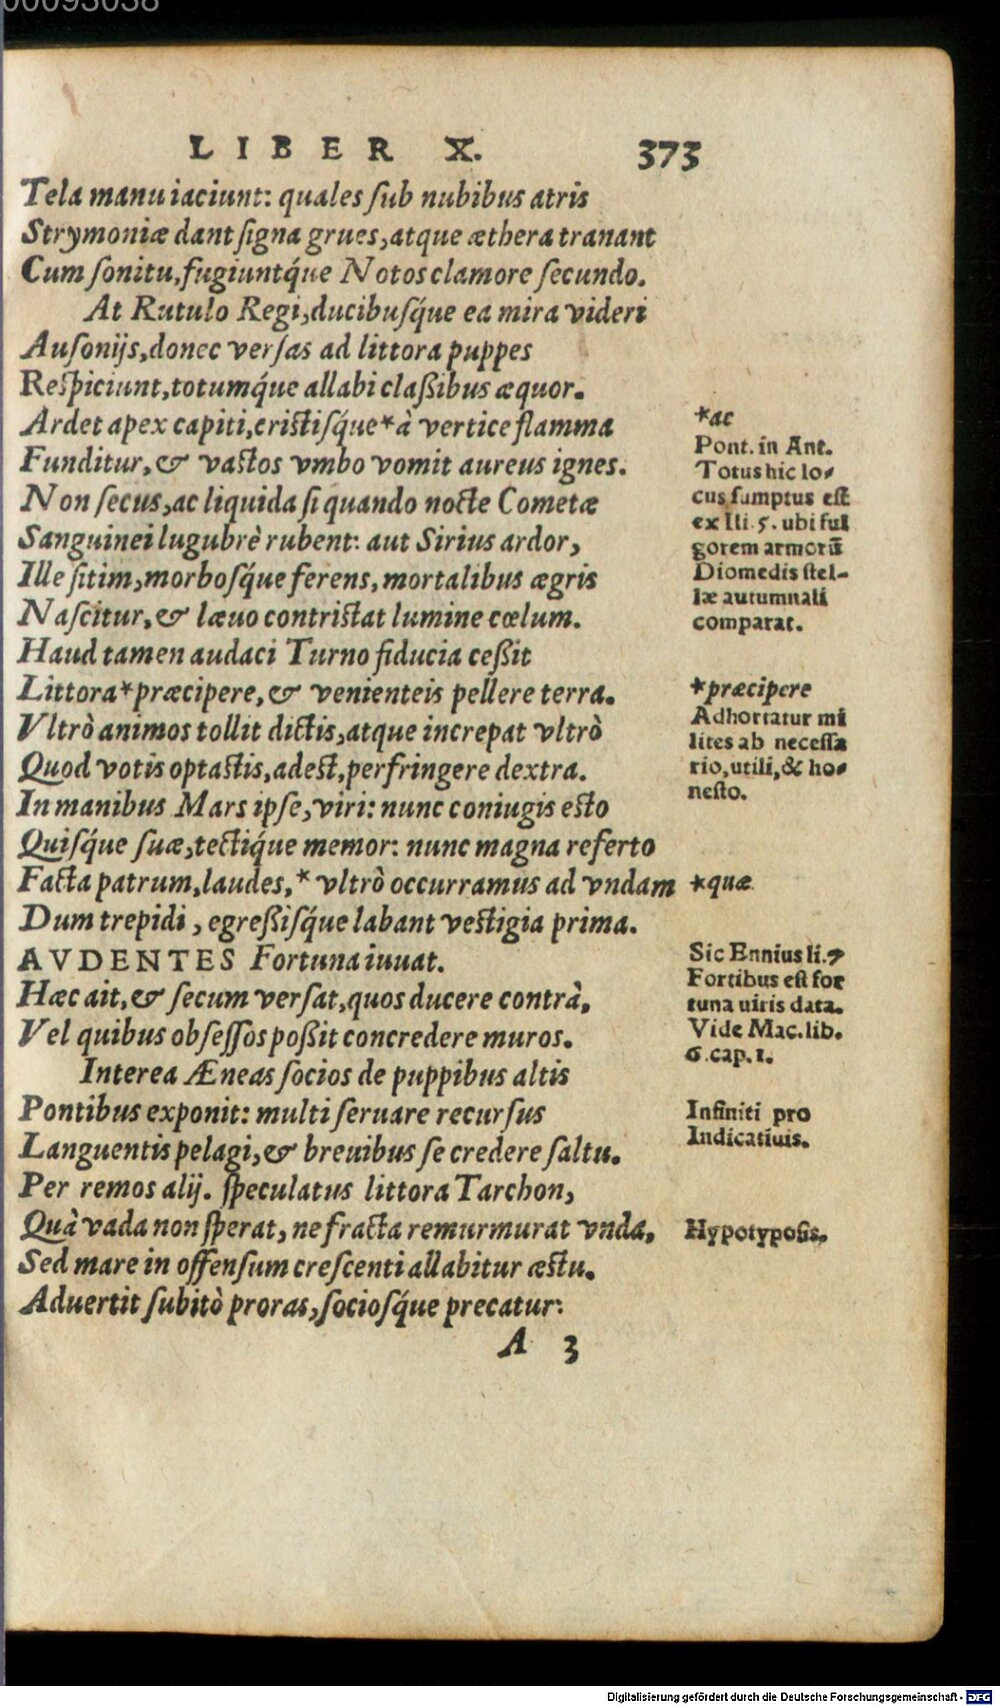 00093038
LIBER X. 373
Tela manu iaciunt: quales ſub nubibus atris
Strymoniæ dant ſigna grues, atque æthera tranant
Cum ſonitu, fugiuntq́ue Notos clamore ſecundo.
At Rutulo Regi, ducibuſq́ue ea mira videri
Auſonijs, donec verſas ad littora puppes
Reſpiciunt, totumq́ue allabi claßibus æquor.
Ardet apex capiti, criſtiſq́ue * à vertice flamma
Funditur, & vaſtos vmbo vomit aureus ignes.
Non ſecus, ac liquida ſi quando nocte Cometæ
Sanguinei lugubrè rubent: aut Sirius ardor,
Ille ſitim, morboſq́ue ferens, mortalibus ægris
Naſcitur, & læuo contriſtat lumine cœlum.
Haud tamen audaci Turno fiducia ceßit
Littora * præcipere, & venienteis pellere terra.
Vltrò animos tollit dictis, atque increpat vltrò
Quod votis optaſtis, adeſt, perfringere dextra.
In manibus Mars ipſe, viri: nunc coniugis eſto
Quiſq́ue ſuæ, tectiq́ue memor: nunc magna referto
Facta patrum, laudes, * vltrò occurramus ad vndam
Dum trepidi, egreßiſq́ue labant veſtigia prima.
AVDENTES Fortuna iuuat.
Hæc ait, & ſecum verſat, quos ducere contrà,
Vel quibus obſeſſos poßit concredere muros.
Interea Æneas ſocios de puppibus altis
Pontibus exponit: multi ſeruare recurſus
Languentis pelagi, & breuibus ſe credere ſaltu.
Per remos alij. ſpeculatus littora Tarchon,
Quà vada non ſperat, ne fracta remurmurat vnda,
Sed mare in offenſum creſcenti allabitur æſtu.
Aduertit ſubitò proras, ſocioſq́ue precatur:
A 3
*ac
Pont. in Ant.
Totus hic lo-
cus ſumptus eſt
ex Ili. 5. ubi ful
gorem armorū
Diomedis ſtel-
læ autumnali
comparat.
*præcipere
Adhortatur mi
lites ab neceſſa
rio, utili, & ho-
neſto.
*quæ
Sic Ennius li. 7
Fortibus eſt for
tuna uiris data.
Vide Mac. lib.
6. cap. 1.
Infiniti pro
Indicatiuis.
Hypotypoſis.
Digitalisierung gefördert durch die Deutsche Forschungsgemeinschaft - DFG